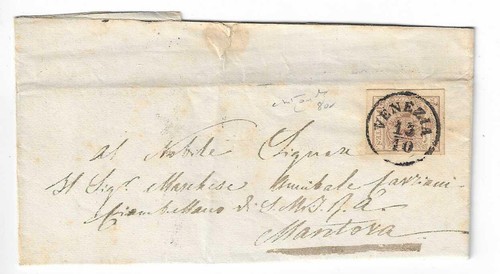 VENEZIA
13
10
al Nobile Signore
Il Sig.r Marchese Annibale Cavriani
Ciambellano di S.M.I.R.A.
Mantova